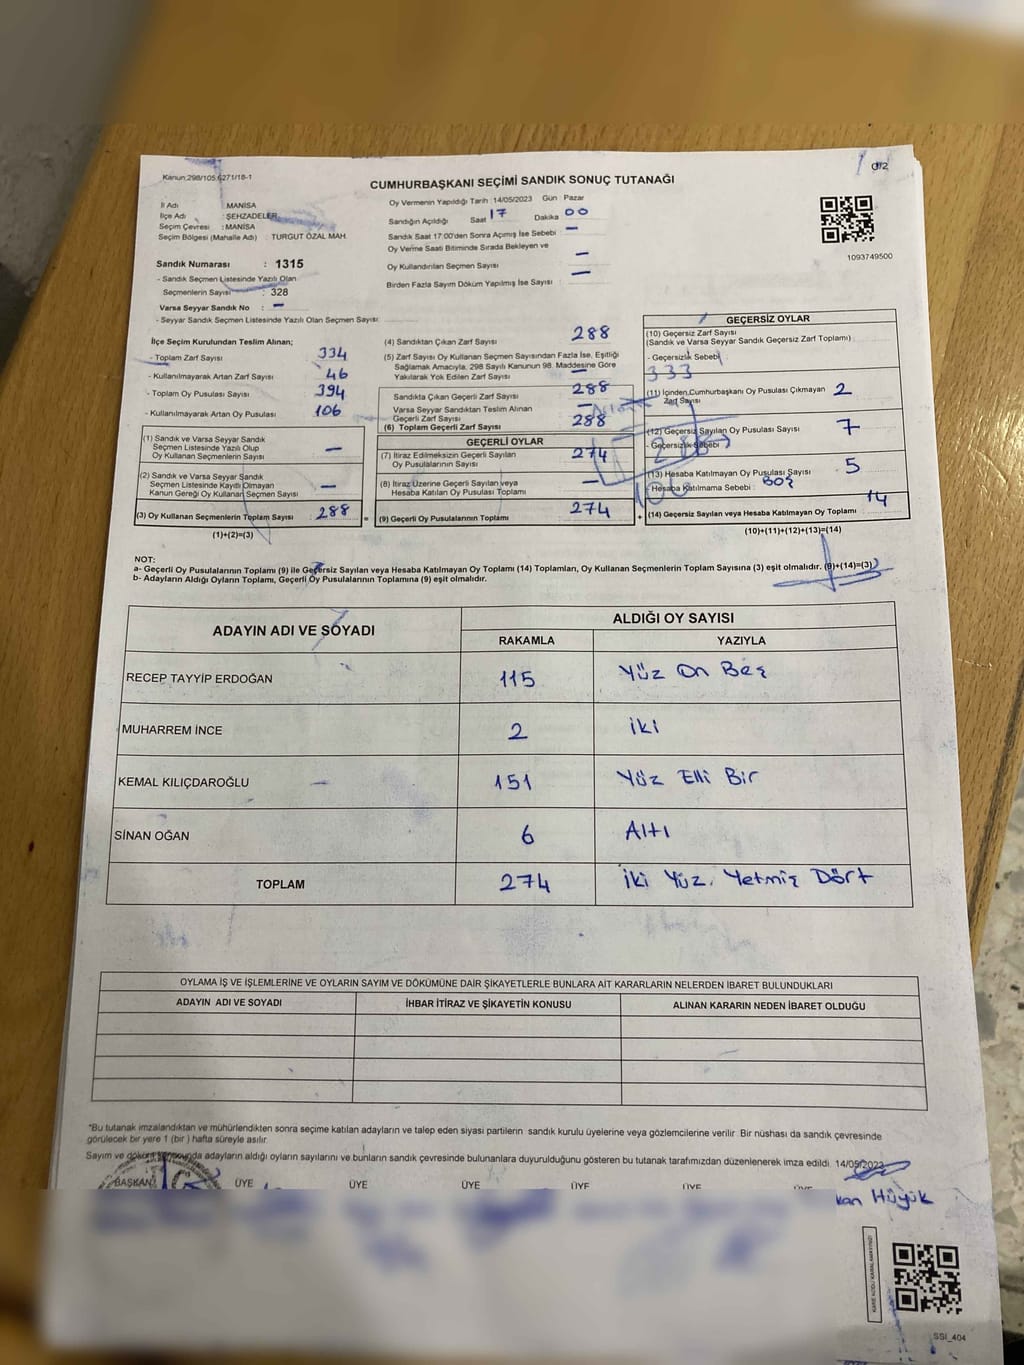 Kanun:298/105,6271/18-1
0/2
CUMHURBAŞKANI SEÇİMİ SANDIK SONUÇ TUTANAĞI
İl Adı : MANİSA
İlçe Adı : ŞEHZADELER
Seçim Çevresi : MANİSA
Seçim Bölgesi (Mahalle Adı) : TURGUT ÖZAL MAH.
Sandık Numarası : 1315
- Sandık Seçmen Listesinde Yazılı Olan
Seçmenlerin Sayısı : 328
Varsa Seyyar Sandık No : -
- Seyyar Sandık Seçmen Listesinde Yazılı Olan Seçmen Sayısı:
Oy Vermenin Yapıldığı Tarih :14/05/2023 Gün Pazar
Sandığın Açıldığı Saat 17 Dakika 00
Sandık Saat 17:00'den Sonra Açımış İse Sebebi -
Oy Verme Saati Bitiminde Sırada Bekleyen ve
Oy Kullandırılan Seçmen Sayısı -
Birden Fazla Sayım Döküm Yapılmış İse Sayısı -
1093749500
İlçe Seçim Kurulundan Teslim Alınan;
- Toplam Zarf Sayısı 334
- Kullanılmayarak Artan Zarf Sayısı 46
- Toplam Oy Pusulası Sayısı 394
- Kullanılmayarak Artan Oy Pusulası 106
(1) Sandık ve Varsa Seyyar Sandık
Seçmen Listesinde Yazılı Olup
Oy Kullanan Seçmenlerin Sayısı -
(2) Sandık ve Varsa Seyyar Sandık
Seçmen Listesinde Kayıtlı Olmayan
Kanun Gereği Oy Kullanan Seçmen Sayısı -
(3) Oy Kullanan Seçmenlerin Toplam Sayısı 288
(1)+(2)=(3)
(4) Sandıktan Çıkan Zarf Sayısı 288
(5) Zarf Sayısı Oy Kullanan Seçmen Sayısından Fazla İse, Eşitliği
Sağlamak Amacıyla, 298 Sayılı Kanunun 98. Maddesine Göre
Yakılarak Yok Edilen Zarf Sayısı -
Sandıkta Çıkan Geçerli Zarf Sayısı 288
Varsa Seyyar Sandıktan Teslim Alınan
Geçerli Zarf Sayısı -
(6) Toplam Geçerli Zarf Sayısı 288
GEÇERLİ OYLAR
(7) İtiraz Edilmeksizin Geçerli Sayılan
Oy Pusulalarının Sayısı 274
(8) İtiraz Üzerine Geçerli Sayılan veya
Hesaba Katılan Oy Pusulası Toplamı -
(9) Geçerli Oy Pusulalarının Toplamı 274
GEÇERSİZ OYLAR
(10) Geçersiz Zarf Sayısı
(Sandık ve Varsa Seyyar Sandık Geçersiz Zarf Toplamı)
- Geçersizlik Sebebi
333
(11) İçinden Cumhurbaşkanı Oy Pusulası Çıkmayan
Zarf Sayısı 2
(12) Geçersiz Sayılan Oy Pusulası Sayısı 7
- Geçersizlik Sebebi
288
(13) Hesaba Katılmayan Oy Pusulası Sayısı 5
Hesaba Katılmama Sebebi : BOŞ
106
(14) Geçersiz Sayılan veya Hesaba Katılmayan Oy Toplamı 14
(10)+(11)+(12)+(13)=(14)
NOT:
a- Geçerli Oy Pusulalarının Toplamı (9) ile Geçersiz Sayılan veya Hesaba Katılmayan Oy Toplamı (14) Toplamları, Oy Kullanan Seçmenlerin Toplam Sayısına (3) eşit olmalıdır. (9)+(14)=(3)
b- Adayların Aldığı Oyların Toplamı, Geçerli Oy Pusulalarının Toplamına (9) eşit olmalıdır.
ADAYIN ADI VE SOYADI
ALDIĞI OY SAYISI
RAKAMLA YAZIYLA
RECEP TAYYİP ERDOĞAN 115 Yüz On Beş
MUHARREM İNCE 2 İki
KEMAL KILIÇDAROĞLU 151 Yüz Elli Bir
SİNAN OĞAN 6 Altı
TOPLAM 274 İki Yüz. Yetmiş Dört
OYLAMA İŞ VE İŞLEMLERİNE VE OYLARIN SAYIM VE DÖKÜMÜNE DAİR ŞİKAYETLERLE BUNLARA AİT KARARLARIN NELERDEN İBARET BULUNDUKLARI
ADAYIN ADI VE SOYADI İHBAR İTİRAZ VE ŞİKAYETİN KONUSU ALINAN KARARIN NEDEN İBARET OLDUĞU
*Bu tutanak imzalandıktan ve mühürlendikten sonra seçime katılan adayların ve talep eden siyasi partilerin sandık kurulu üyelerine veya gözlemcilerine verilir. Bir nüshası da sandık çevresinde
görülecek bir yere 1 (bir) hafta süreyle asılır.
Sayım ve döküm sonunda adayların aldığı oyların sayılarını ve bunların sandık çevresinde bulunanlara duyurulduğunu gösteren bu tutanak tarafımızdan düzenlenerek imza edildi. 14/05/2023
BAŞKAN ÜYE ÜYE ÜYE ÜYE ÜYE
Hüyük
SSI_404